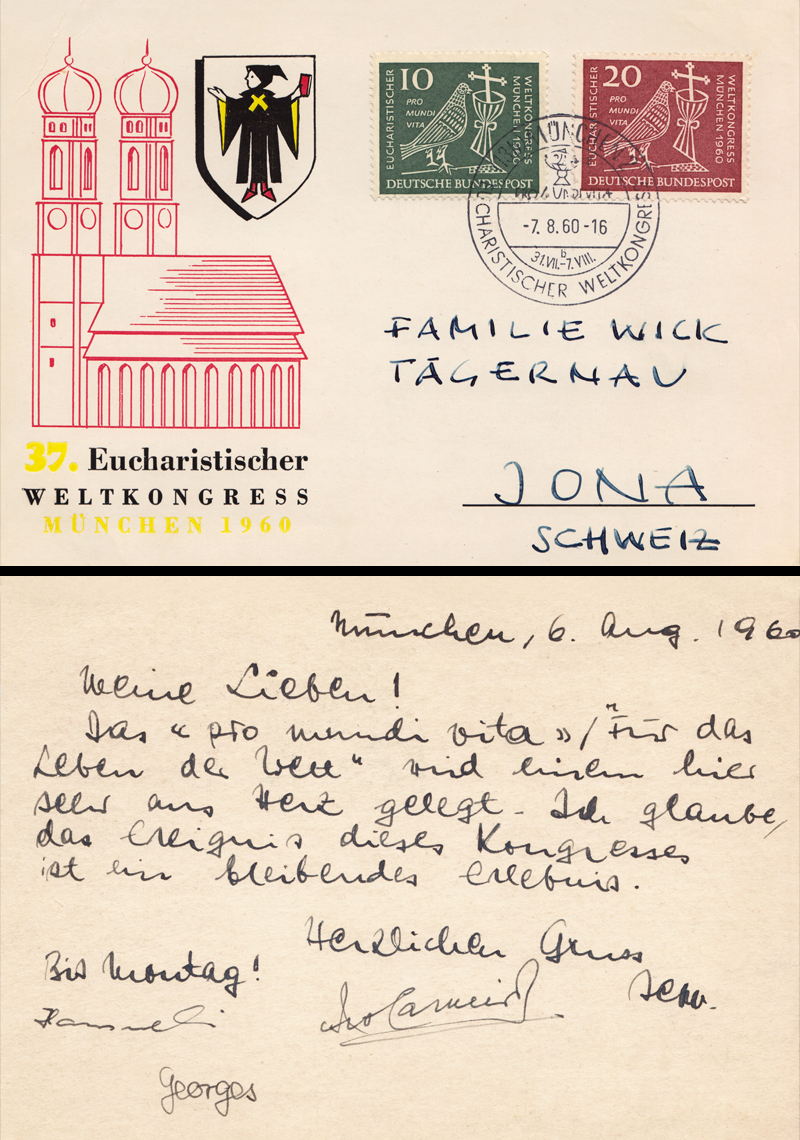 10
EUCHARISTISCHER
PRO
MUNDI
VITA
WELTKONGRESS
MÜNCHEN 1960
DEUTSCHE BUNDESPOST
20
EUCHARISTISCHER
PRO
MUNDI
VITA
WELTKONGRESS
MÜNCHEN 1960
DEUTSCHE BUNDESPOST
MÜNCHEN
-7.8.60-16
b
31.VII.-7.VIII.
EUCHARISTISCHER WELTKONGRESS
FAMILIE WICK
TÄGERNAU
JONA
SCHWEIZ
37. Eucharistischer
WELTKONGRESS
MÜNCHEN 1960
München, 6. Aug. 1960
Meine Lieben!
Das « pro mundi vita » / "Für das
Leben der Welt" wird einem hier
sehr ans Herz gelegt - Ich glaube,
das Ereignis dieses Kongresses
ist ein bleibendes Erlebnis.
Herzlichen Gruss
Bis Montag!
Georges